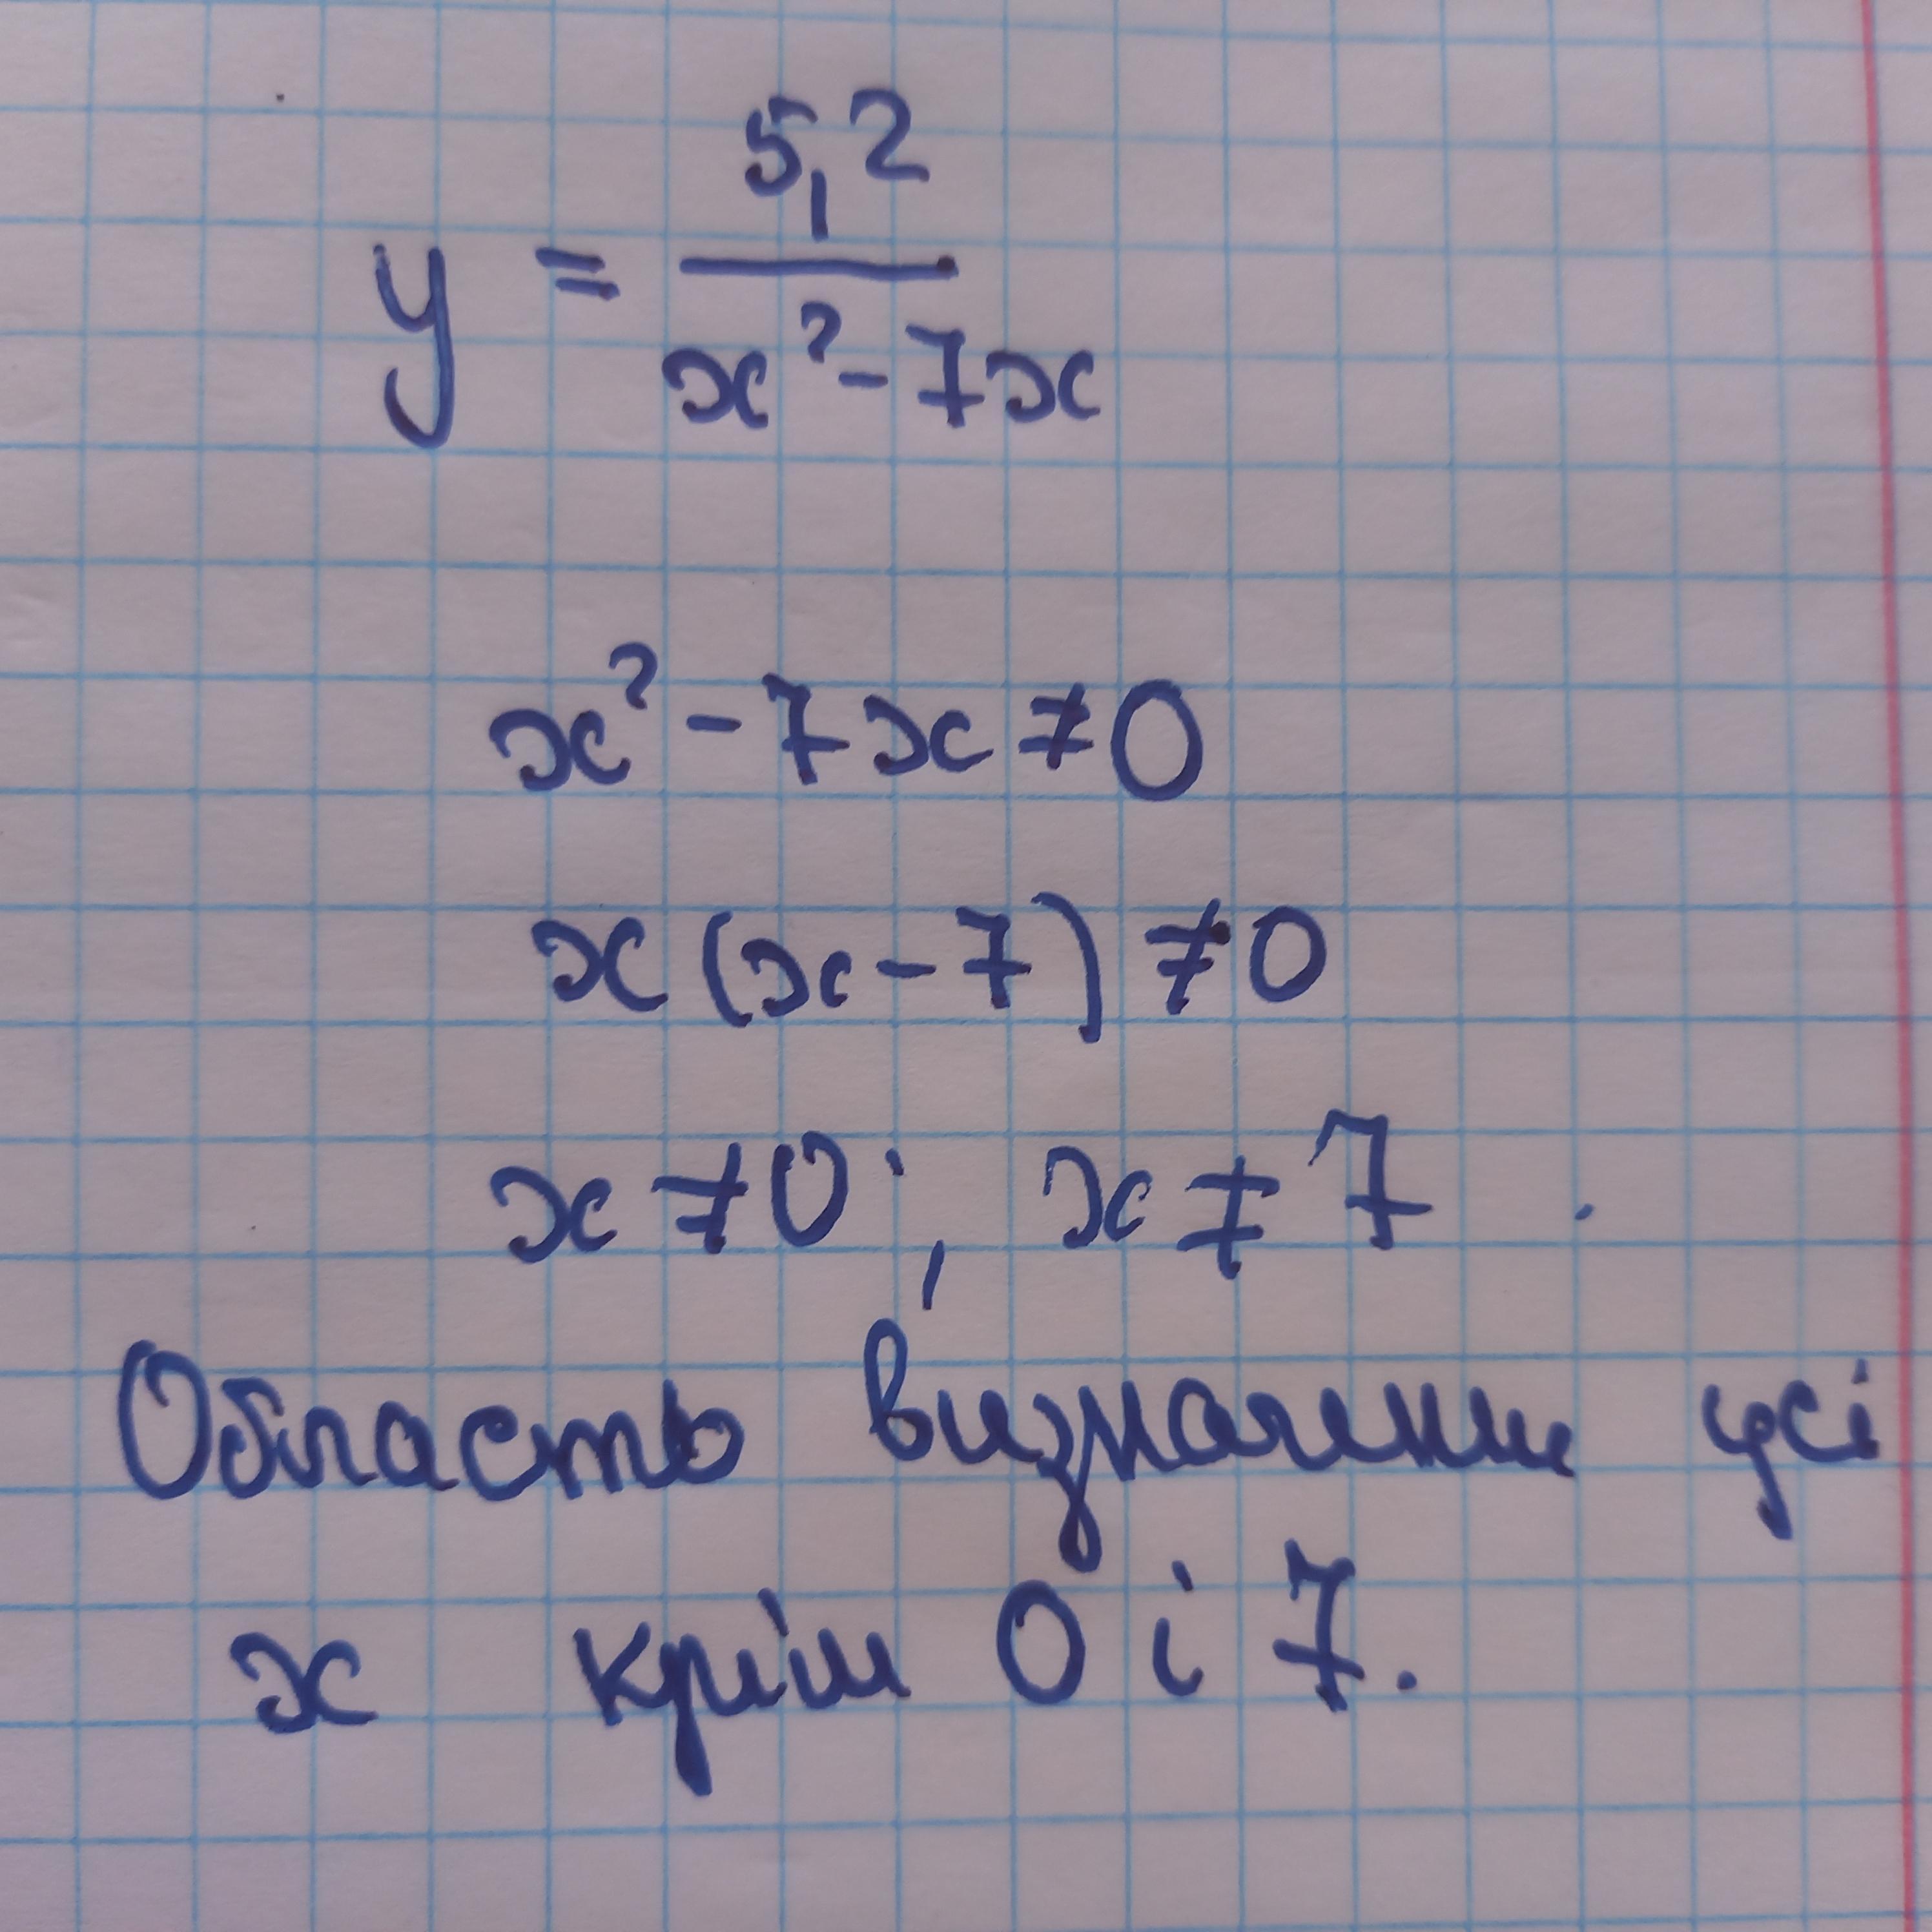 y = 5,2 / x² - 7x
x² - 7x ≠ 0
x (x - 7) ≠ 0
x ≠ 0; x ≠ 7.
Область визначення усі
x крім 0 і 7.